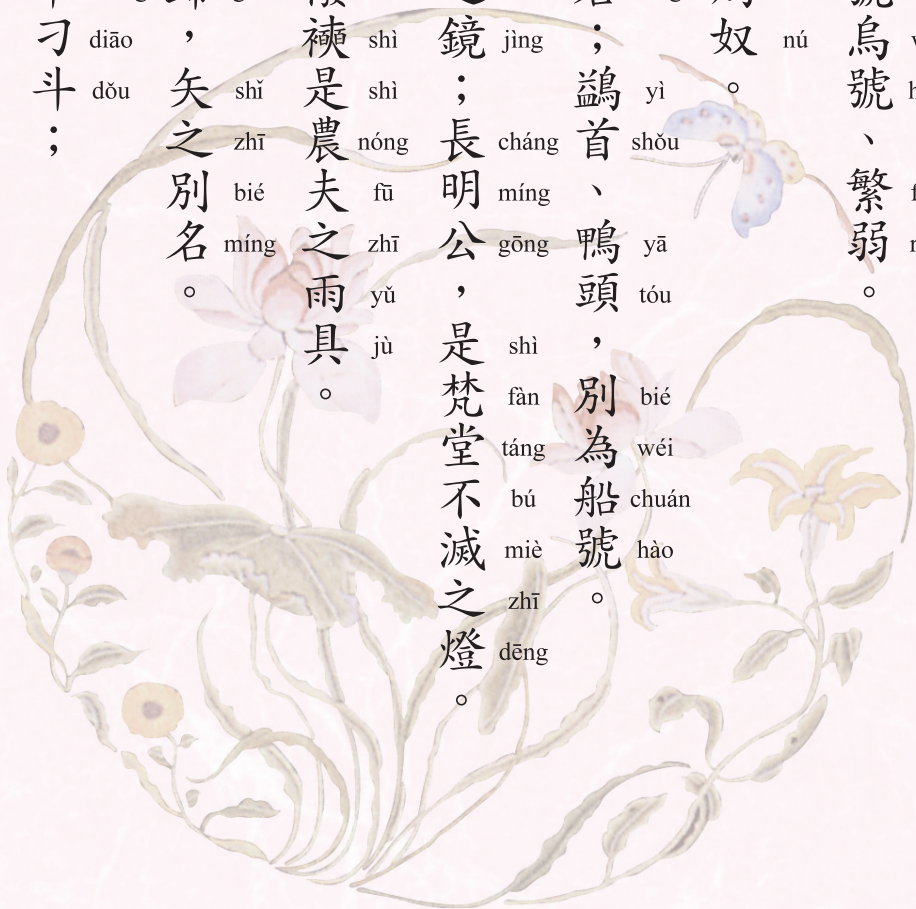 烏號、繁弱。
奴。
nú
；鷁首、鴨頭，別為船號。
yì shǒu yā tóu bié wéi chuán hào
鏡；長明公，是梵堂不滅之燈。
jìng cháng míng gōng shì fàn táng bú miè zhī dēng
襫是農夫之雨具。
shì shì nóng fū zhī yǔ jù
，矢之別名。
shǐ zhī bié míng
刁斗；
diāo dǒu